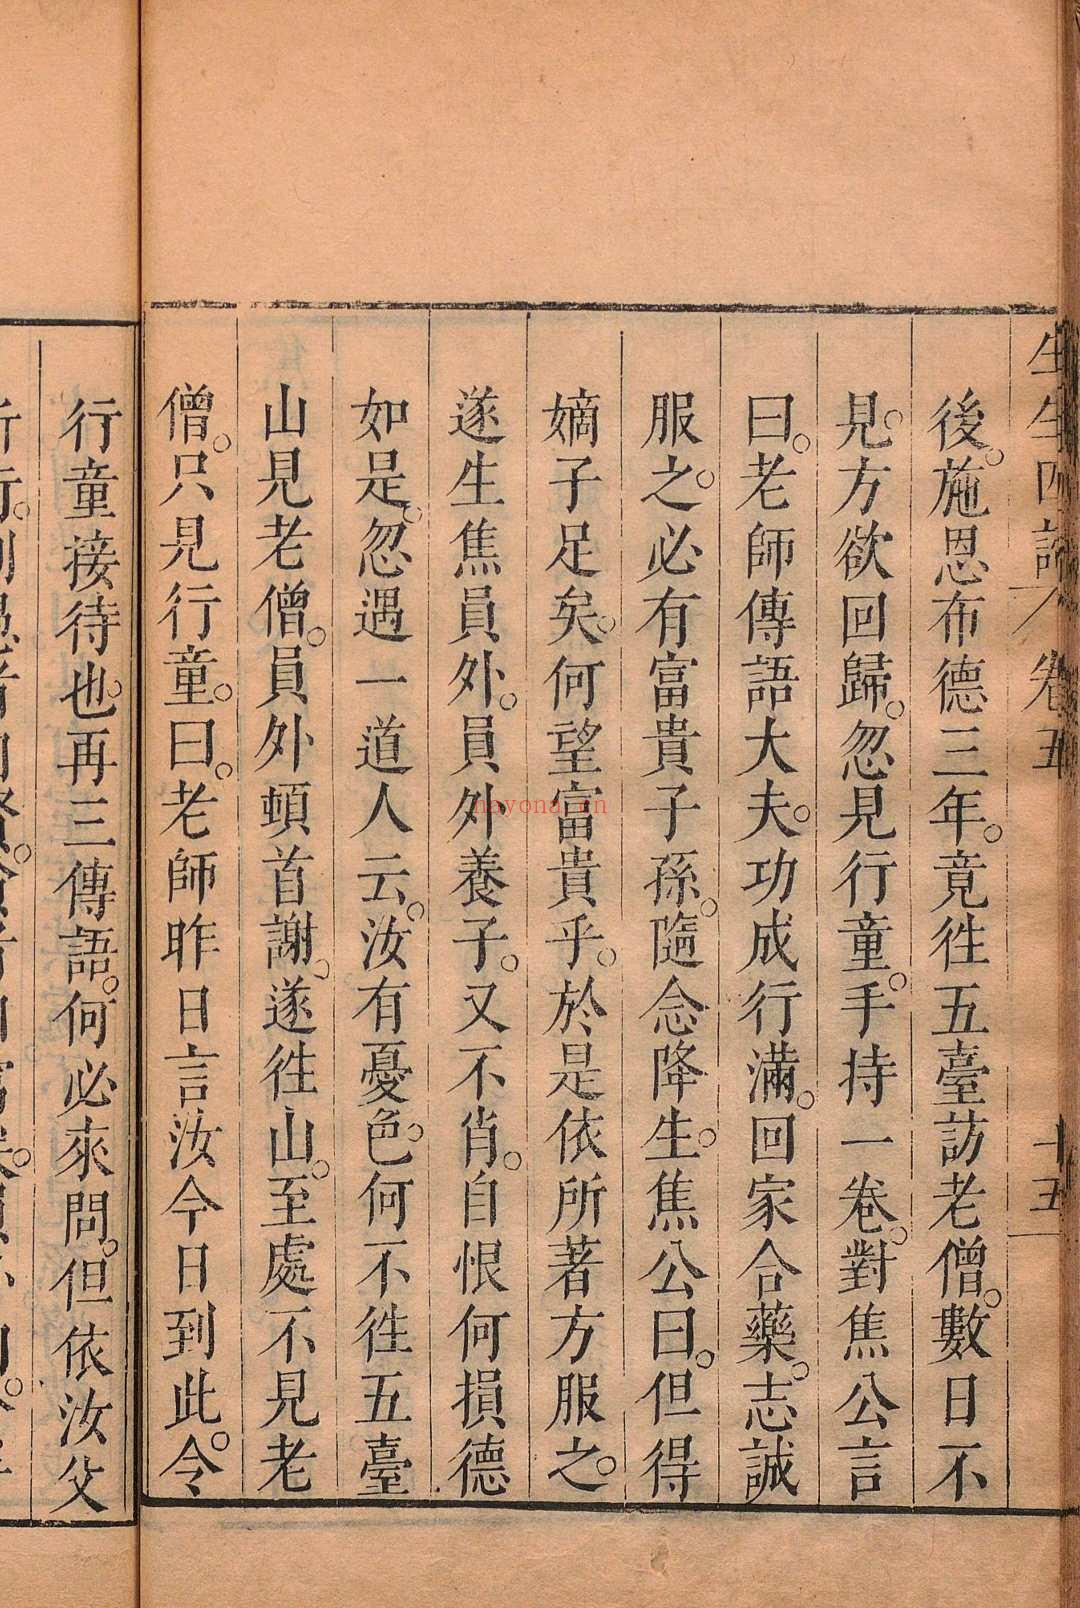 生生四諦 卷五 十五
後。施恩布德三年。竟徃五臺訪老僧。數日不
見。方欲回歸。忽見行童。手持一卷。對焦公言
曰。老師傳語大夫。功成行滿。回家合藥。志誠
服之。必有富貴子孫。隨念降生。焦公曰。但得
嫡子足矣。何望富貴乎。於是依所著方服之。
遂生焦員外。員外養子。又不肖。自恨何損德
如是。忽遇一道人云。汝有憂色。何不徃五臺
山見老僧。員外頓首謝。遂徃山。至處不見老
僧。只見行童。曰。老師昨日言汝今日到此。令
行童接待也。再三傳語。何必來問。但依汝父
hayona.cn